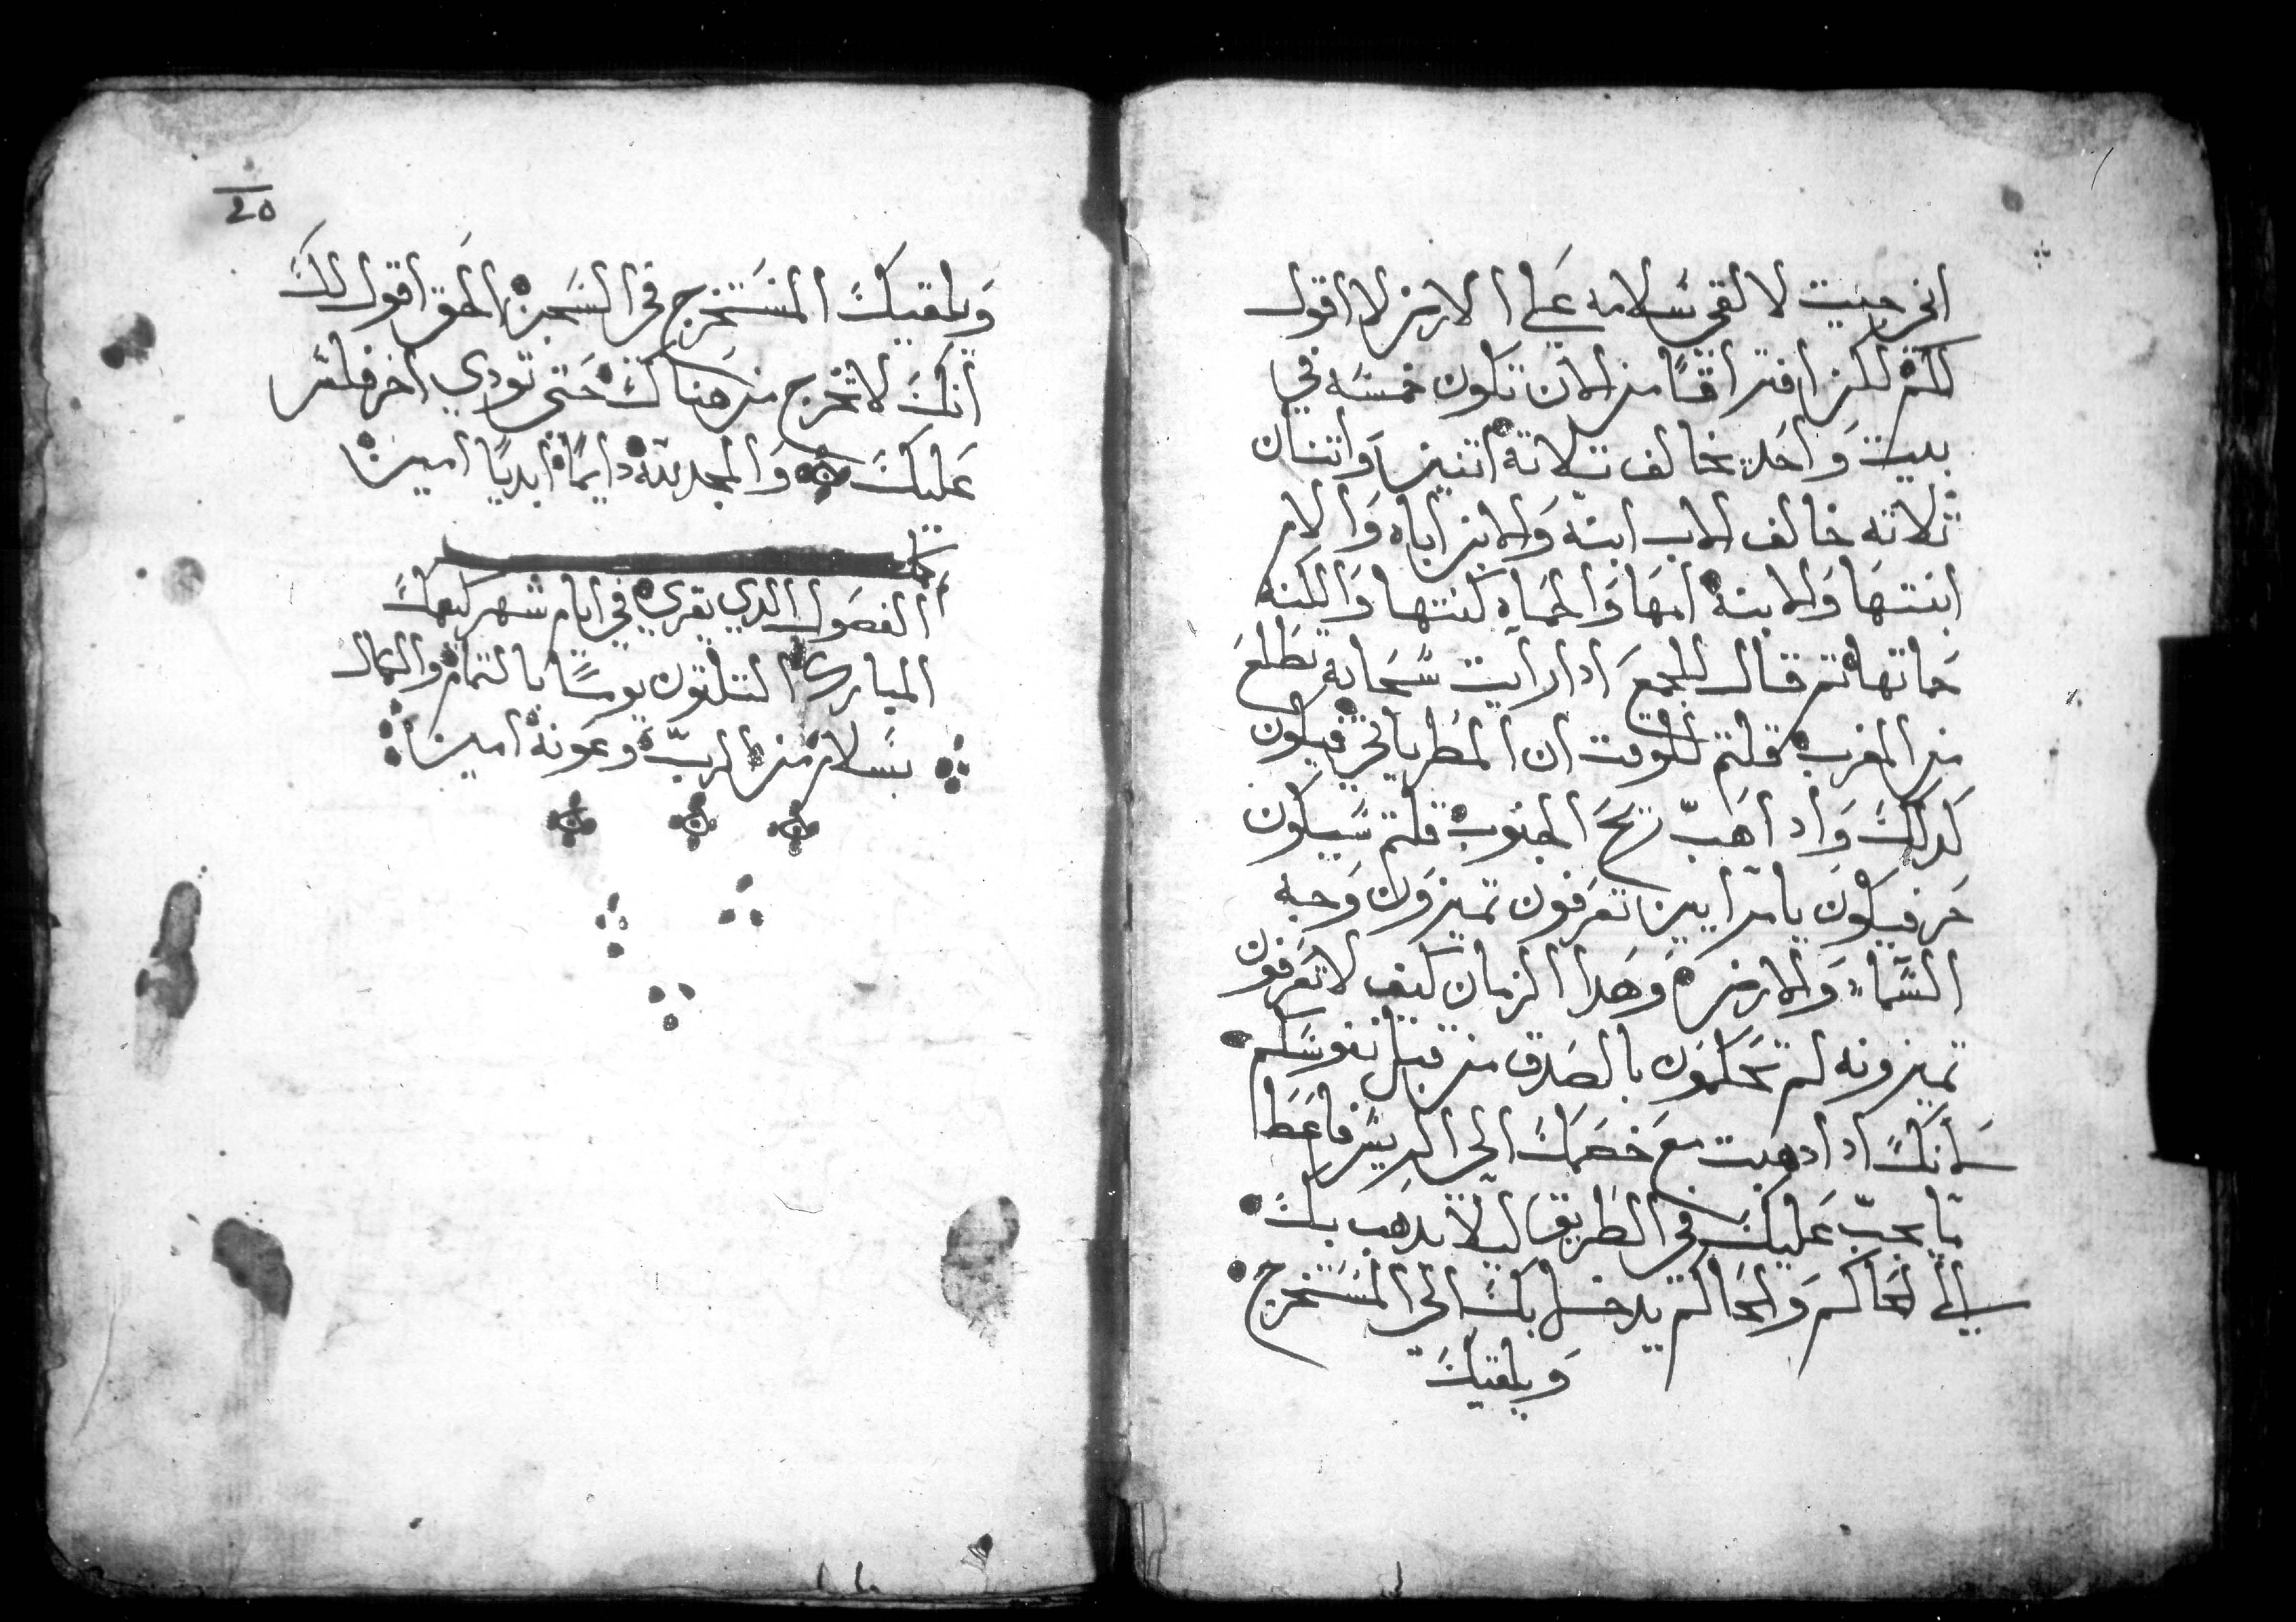 اني جيت لالقي سلامه علي الارض لا اقول
لكم لكن افتراقًا من الان تكون خمسه في
بيت واحد يخالف تلاتة اتنين واتنان
ثلاثه خالف الاب ابنه والابن اباه والام
ابنتها والابنه امها والحماه كنتها والكنه
حماتها تم قال للجمع ادا رايت سحابه تطلع
من المغرب قلتم للوقت ان المطر ياتي فيكون
كدلك وادا هب ريح الجنوب قلتم سيكون
حر فيكون يا مرايين تعرفون تميزون وجه
السماء والارض وهدا الزمان كيف لا تعرفون
تميزونه لم تحكمون بالصدق من قبل نفوسكم
لانك ادا دهبت مع خصمك الي الريس فاعطا
ما يجب عليك في الطريق ليلا يدهب بك
الي الحاكم والحاكم يدخل بك الي المستخرج
ويلقيك
20
ويلقيك المستخرج في السجن الحق اقول لك
انك لا تخرج من هناك حتي تودي اخر فلس
عليك والمجد لله دايمًا ابديًا امين
الفصول الدي يقري في ايام شهر كيهك
المبارك التلتون يومًا بالتمام والكمال
بسلام من الرب وعونه امين